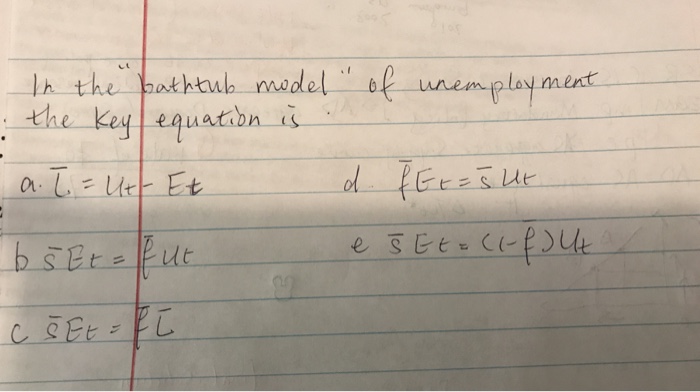 In the "bathtub model" of unemployment
the key equation is :
a. L̄ = Ut - Et
d. f̄Et = s̄Ut
b s̄Et = f̄Ut
e s̄Et = (1-f̄)Ut
c s̄Et = f̄L̄